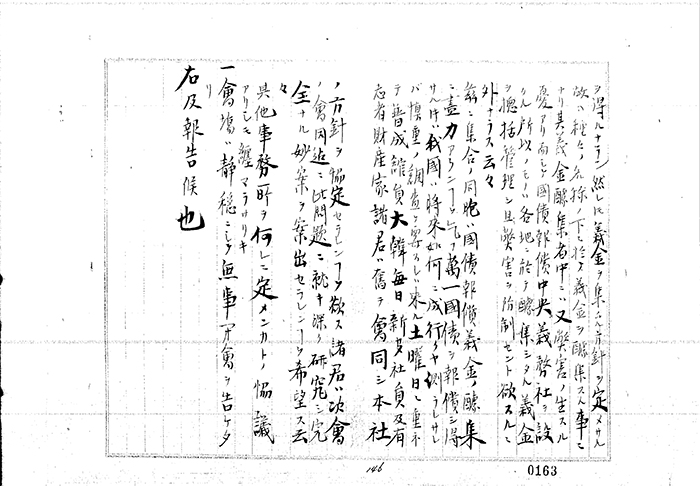 ヲ得ルナラン然レトモ義金ヲ集ムル方針ヲ定メサル
故ニ種々ノ名称ノ下ニ於テ義金ヲ醵集スル事ニ
ナリ其義金醵集者中ニハ又弊害ノ生スル
憂アリ而シテ國債報償中央義務社ヲ設
ケル所以ノモノハ各地ニ於テ醵集シタル義金
ヲ總括管理シ且弊害ヲ防制セント欲スルニ
外ナラス云々
茲ニ集合ノ同胞ハ國債報償義金ノ醵集
ニ盡力アランコトヲ乞フ萬一國債ヲ報償シ得
サル時ハ我國ハ将来如何ニ成行クヤ測ラレサレ
バ慎重ノ調査ヲ要スルヲ以テ来ル土曜日ニ重ネ
テ普成館員大韓毎日新聞社員及有
志者財産家諸君ハ奮テ會同シ本社
ノ方針ヲ協定セラレンコトヲ欲ス諸君ハ次會
ノ會同迄ニ此問題ニ就キ深ク研究シ完
全ナル妙案ヲ案出セラレンコトヲ希望ス云
々
其他事務所ヲ何レニ定メンカトノ協議
アリシモ纏マラサリキ
一會場ハ静穏ニシテ無事閉會ヲ告ケタ
リ
右及報告候也
146
0163